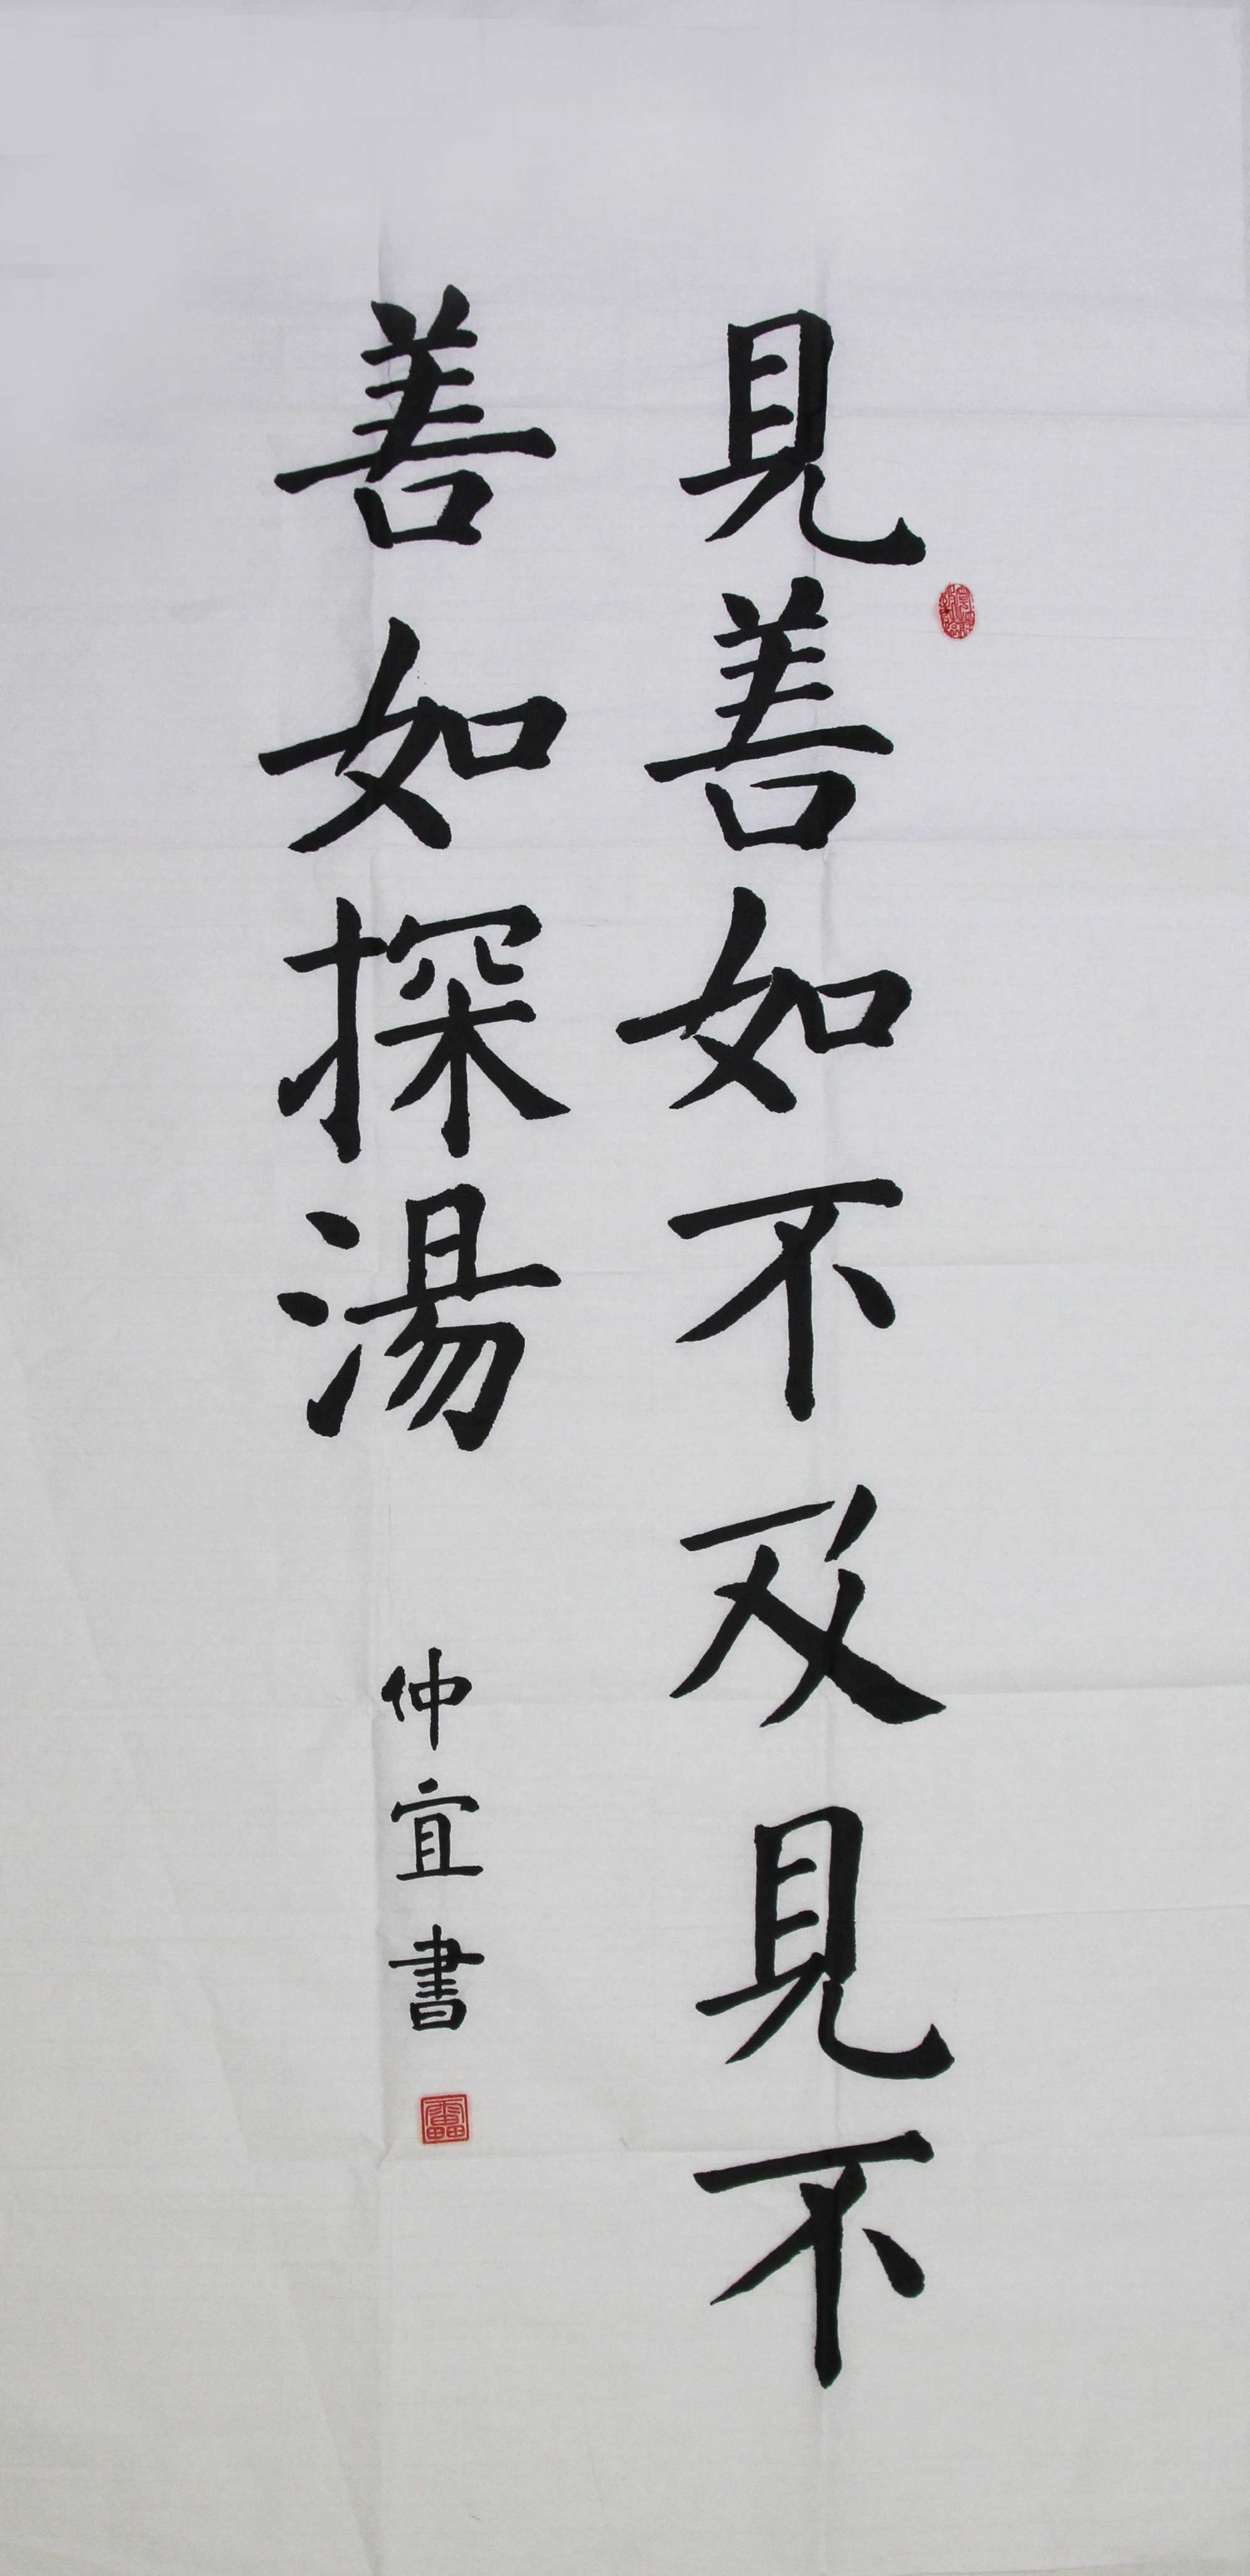 見善如不及見不
善如探湯
仲宜書